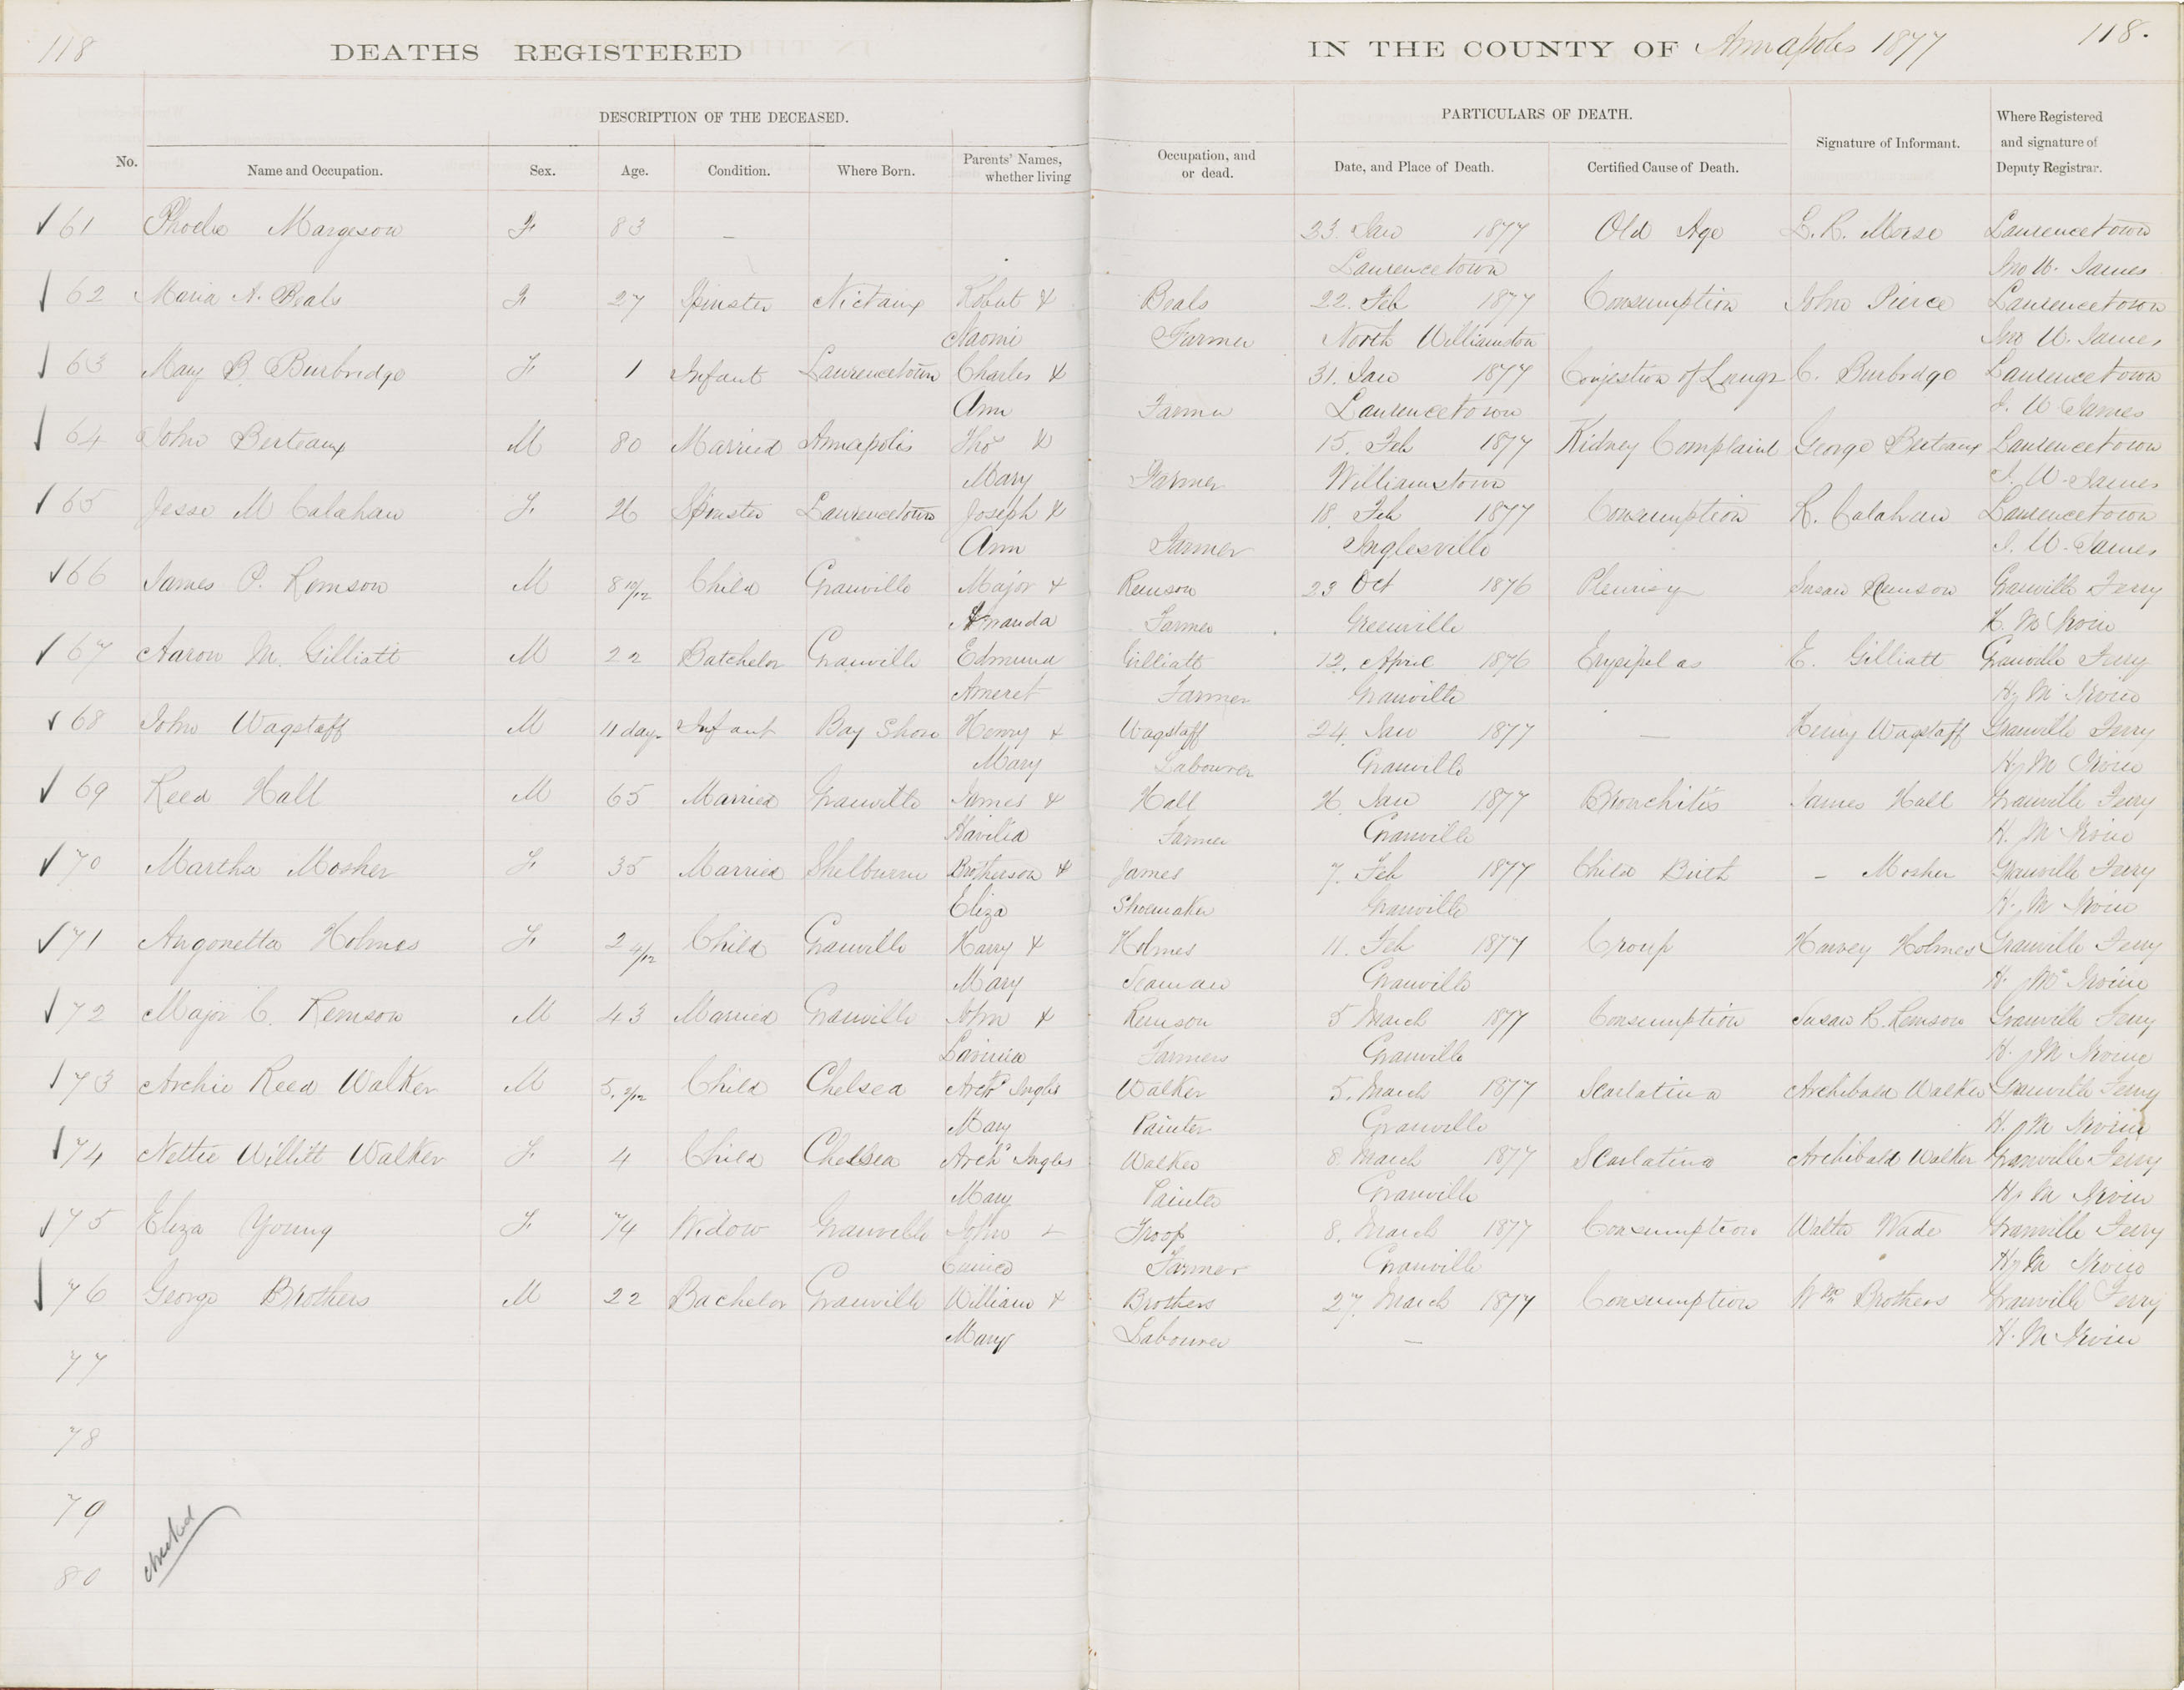 118
DEATHS REGISTERED IN THE COUNTY OF Annapolis 1877 118.
DESCRIPTION OF THE DECEASED. PARTICULARS OF DEATH.
No. Name and Occupation. Sex. Age. Condition. Where Born. Parents' Names, whether living Occupation, and or dead. Date, and Place of Death. Certified Cause of Death. Signature of Informant. Where Registered and signature of Deputy Registrar.
61 Phoebe Margeson F 83 — 23. Jan 1877 Old Age L. R. Morse Laurencetown
Laurencetown Jno W. James
62 Maria A. Beals F 27 Spinster Nictaux Robert & Beals 22. Feb 1877 Consumption John Pierce Laurencetown
Naomi Farmer North Williamston Jno W. James
63 Mary B. Burbridge F 1 Infant Laurencetown Charles & 31. Jan 1877 Conjestion of Lungs C. Burbridge Laurencetown
Ann Farmer Laurencetown J. W James
64 John Berteaux M 80 Married Annapolis Thos & 15. Feb 1877 Kidney Complaint George Berteaux Laurencetown
Mary Farmer Williamstown J. W. James
65 Jesse M Calahan F 26 Spinster Laurencetown Joseph & 18. Feb 1877 Consumption R. Calahan Laurencetown
Ann Farmer Inglesville J. W. James
66 James P. Remson M 8 10/12 Child Granville Major & Remson 23 Oct 1876 Pleurisy Susan Remson Granville Ferry
Amanda Farmer Greenville H. M Irvin
67 Aaron M. Gilliatt M 22 Batchelor Granville Edmund Gilliatt 12. April 1876 Erysipelas E. Gilliatt Granville Ferry
Ameret Farmer Granville Hy M Irvin
68 John Wagstaff M 11 days Infant Bay Shore Henry & Wagstaff 24. Jan 1877 — Henry Wagstaff Granville Ferry
Mary Labourer Granville Hy M Irvin
69 Reed Hall M 65 Married Granville James & Hall 26. Jan 1877 Bronchitis James Hall Granville Ferry
Havilia Farmer Granville H. M Irvin
70 Martha Mosher F 35 Married Shelburne Brotherson & James 7. Feb 1877 Child Birth — Mosher Granville Ferry
Eliza Shoemaker Granville H. M Irvin
71 Angonetta Holmes F 2 4/12 Child Granville Harry & Holmes 11. Feb 1877 Croup Harvey Holmes Granville Ferry
Mary Seaman Granville H. Mc Irvine
72 Major C. Remson M 43 Married Granville John & Remson 5 March 1877 Consumption Susan R. Remson Granville Ferry
Lavinia Farmers Granville H. M Irvine
73 Archie Reed Walker M 5. Child Chelsea Archd Ingles Walker 5. March 1877 Scarlatina Archibald Walker Granville Ferry
Mary Painter Granville H. M Irvine
74 Nettie Willitt Walker F 4 Child Chelsea Archd Ingles Walker 8. March 1877 Scarlatina Archibald Walker Granville Ferry
Mary Painter Granville Hy M Irvin
75 Eliza Young F 74 Widow Granville John & Troop 8. March 1877 Consumption Walter Wade Granville Ferry
Eunice Farmer Granville Hy M Irvin
76 George Brothers M 22 Bachelor Granville William & Brothers 27. March 1877 Consumption Wm Brothers Granville Ferry
Mary Labourer — H. M Irvin
77
78
79
80
checked